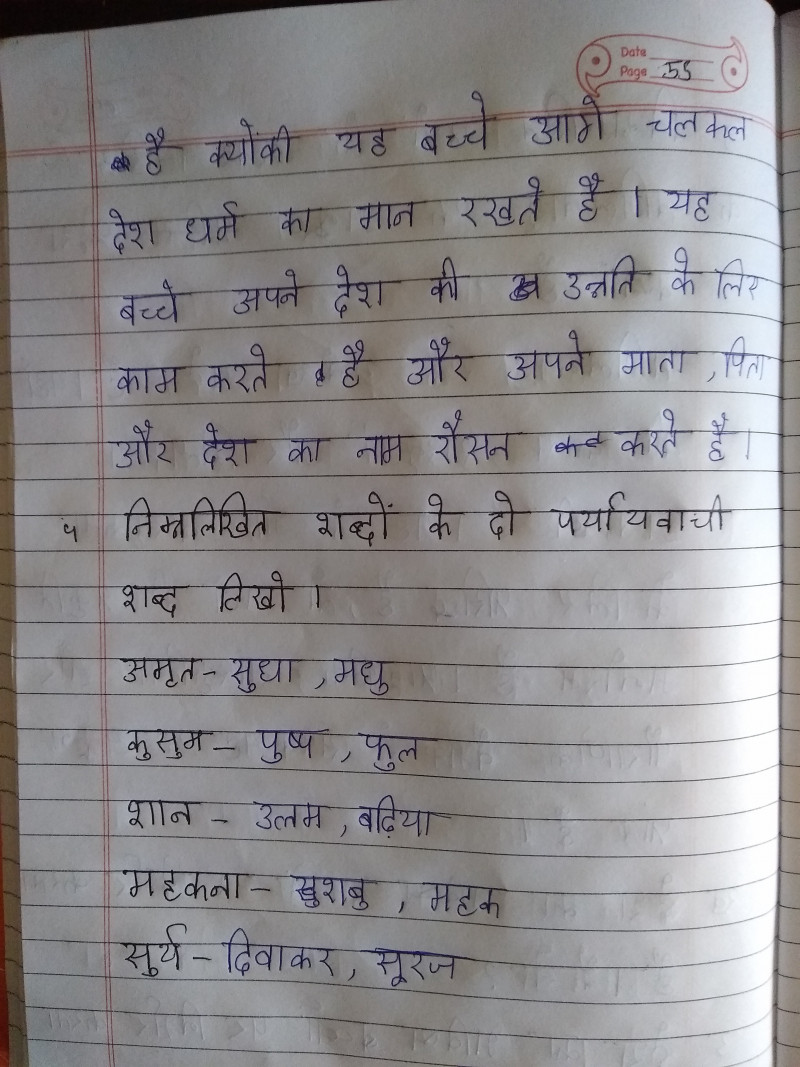 Date
Page 55
है क्योंकी यह बच्चे आगे चलकल
देश धर्म का मान रखते है । यह
बच्चे अपने देश की उन्नति के लिए
काम करते है और अपने माता , पिता
और देश का नाम रौसन करते है ।
५ निम्नलिखित शब्दों के दो पर्यायवाची
शब्द लिखो ।
अमृत - सुधा , मधु
कुसुम - पुष्प , फुल
शान - उलम , बढ़िया
महकना - खुशबु , महक
सुर्य - दिवाकर , सूरज